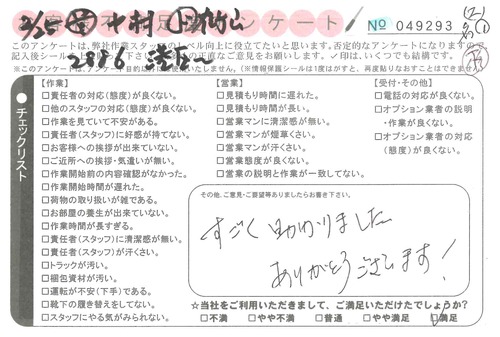 2/25 中村
アンケート
No 049293
このアンケートは、弊社作業スタッフのレベル向上に役立てたいと思います。否定的なアンケートになりますので
2886
☆いくつでも結構です。
チェックリスト
【作業】
□責任者の対応(態度)が良くない。
□他のスタッフの対応(態度)が良くない。
□作業を見ていて不安がある。
□責任者(スタッフ)に好感が持てない。
□お客様への挨拶が出来ていない。
□ご近所への挨拶・気遣いが無い。
□作業開始前の内容確認がなかった。
□作業開始時間が遅れた。
□荷物の取り扱いが雑である。
□お部屋の養生が出来ていない。
□作業時間が長すぎる。
□責任者(スタッフ)に清潔感が無い。
□責任者(スタッフ)が汗くさい。
□トラックが汚い。
□梱包資材が汚い。
□運転が不安(下手)である。
□靴下の履き替えをしてない。
□スタッフにやる気がみられない。
【営業】
□見積もり時間に遅れた。
□見積もり時間が長い。
□営業マンに清潔感が無い。
□営業マンが煙草くさい。
□営業マンが汗くさい。
□営業態度が良くない。
□営業の説明と作業が一致してない。
【受付・その他】
□電話の対応が良くない。
□オプション業者の説明
・作業が良くない。
□オプション業者の対応
(態度)が良くない。
その他、ご意見・ご要望等ありましたらお書き下さい。
すごく助かりました
ありがとうございます!
☆当社をご利用いただきまして、ご満足いただけたでしょうか?
□不満 □やや不満 □普通 □やや満足 □満足